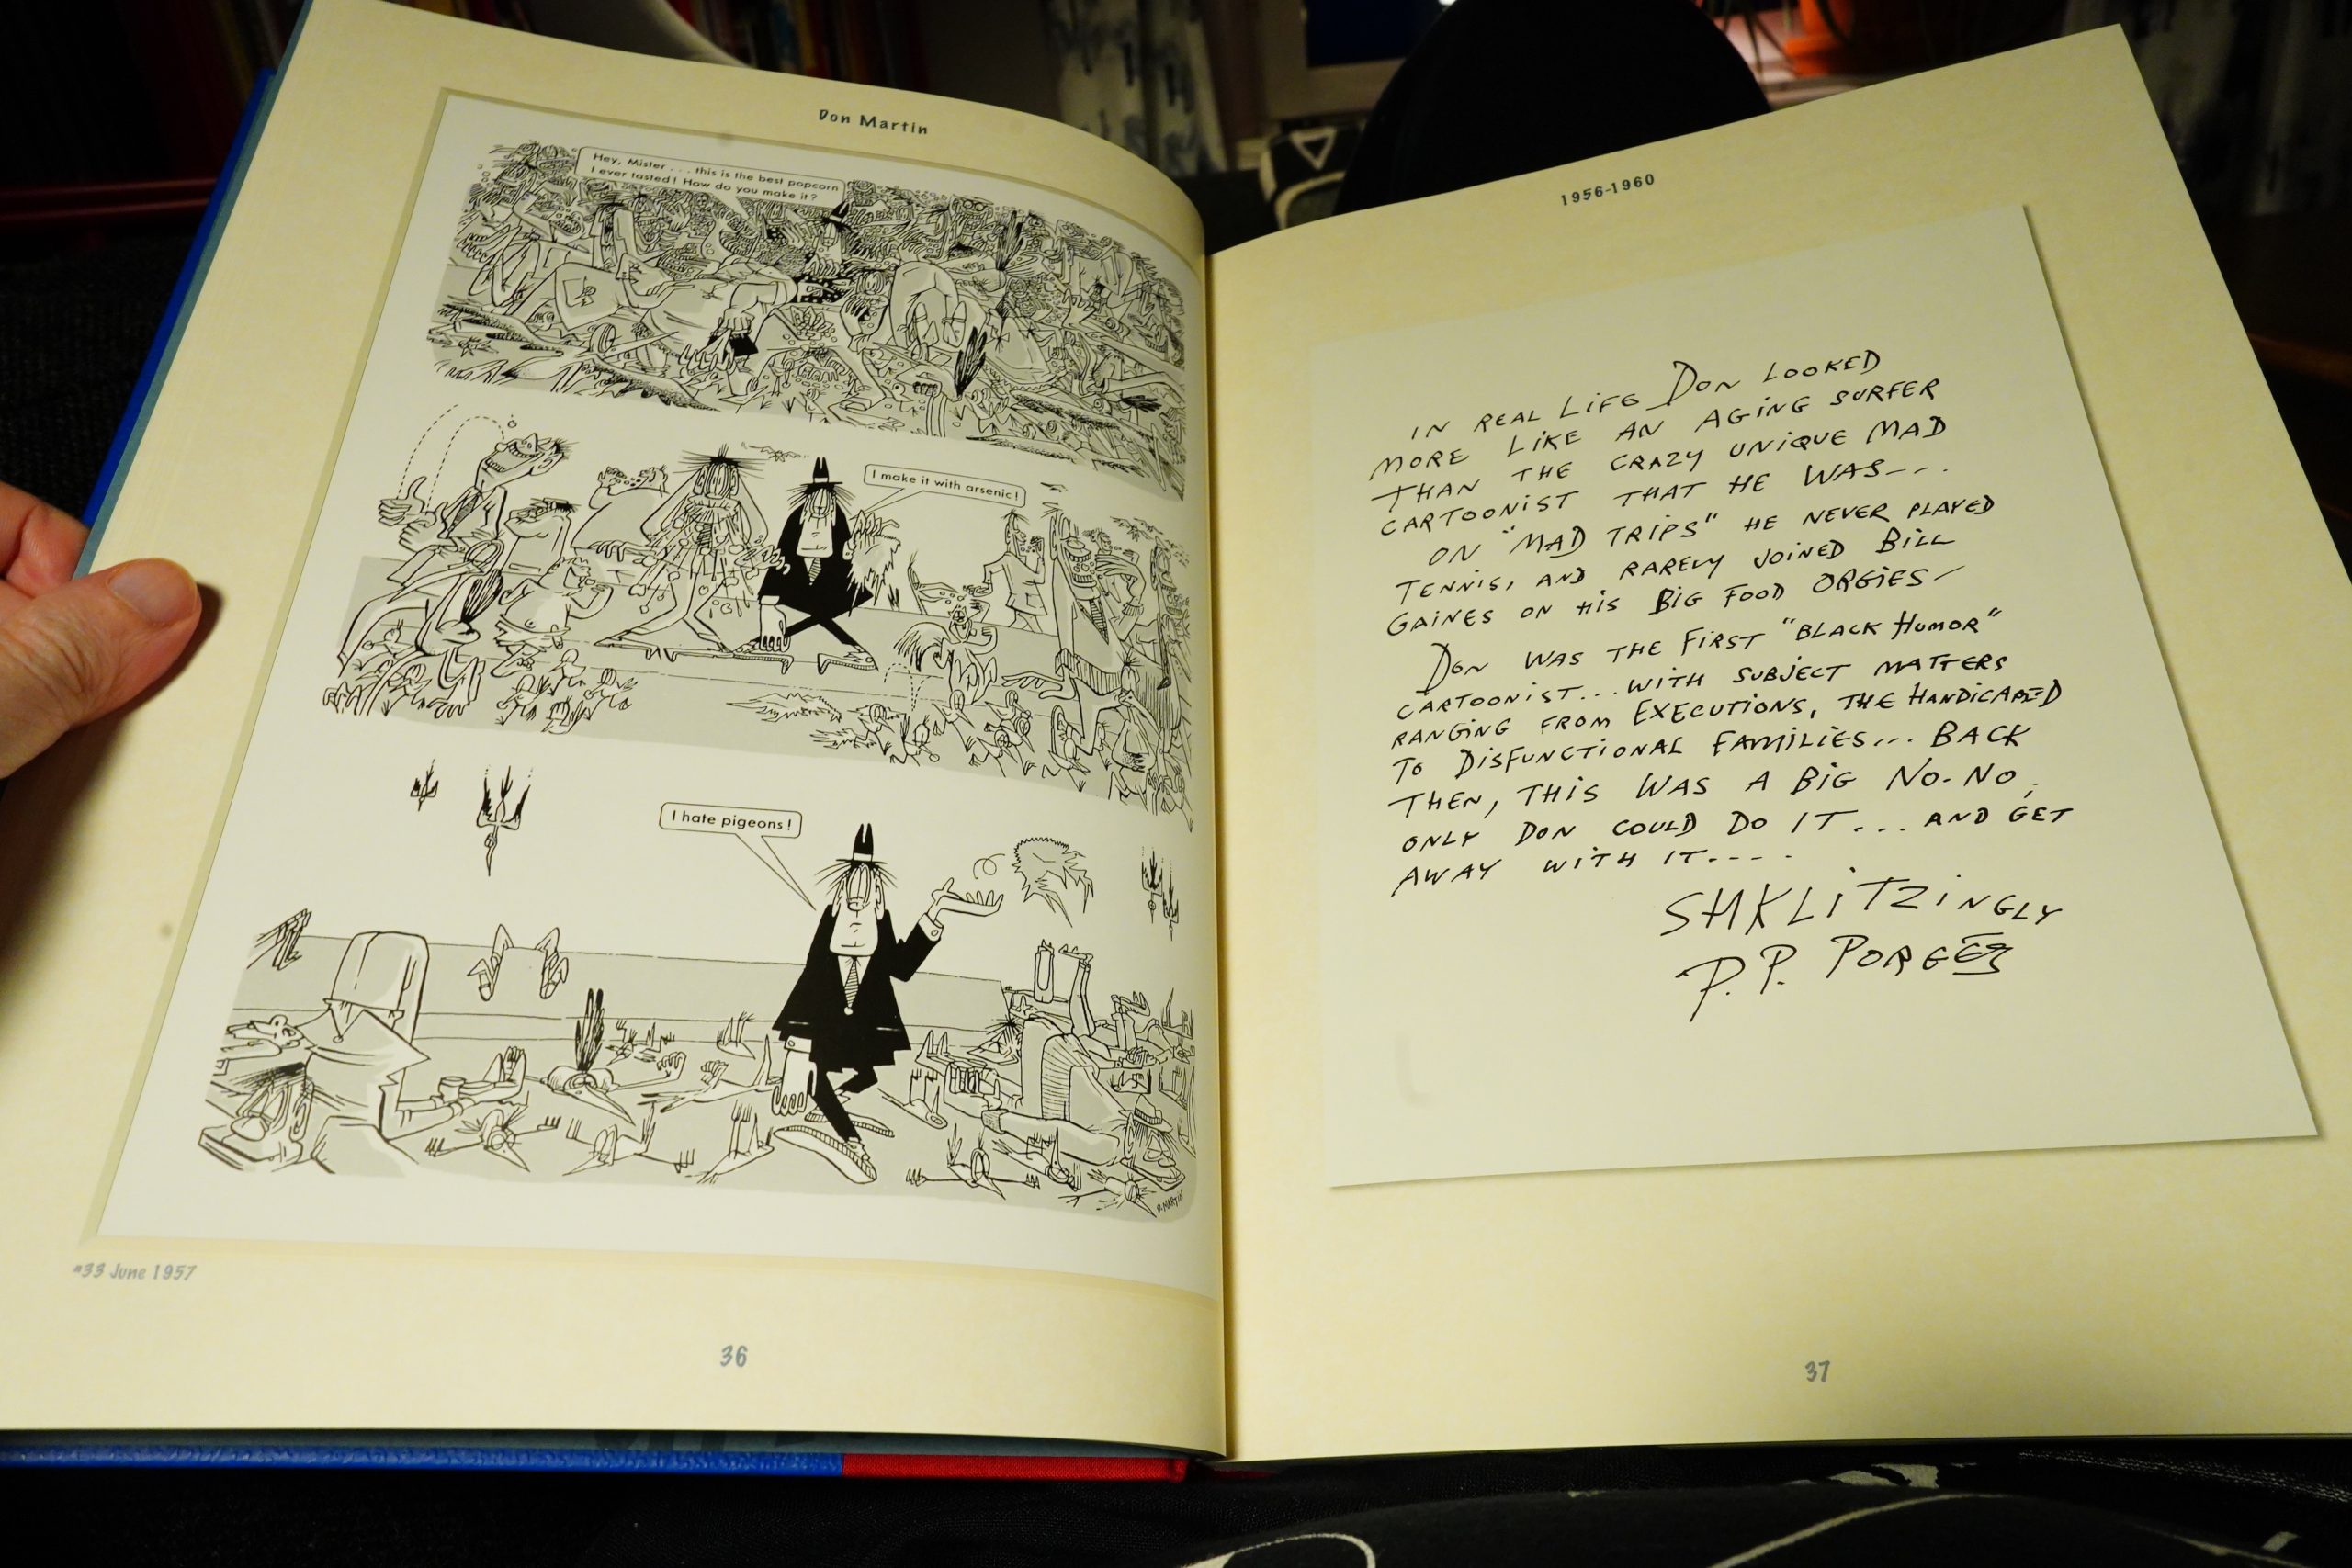 Don Martin
Hey, Mister . . . this is the best popcorn
I ever tasted! How do you make it?
I make it with arsenic!
I hate pigeons!
D. MARTIN
#33 June 1957
36
1956-1960
IN REAL LIFE DON LOOKED
MORE LIKE AN AGING SURFER
THAN THE CRAZY UNIQUE MAD
CARTOONIST THAT HE WAS---.
ON "MAD TRIPS" HE NEVER PLAYED
TENNIS, AND RARELY JOINED BILL
GAINES ON HIS BIG FOOD ORGIES—
DON WAS THE FIRST "BLACK HUMOR"
CARTOONIST... WITH SUBJECT MATTERS
RANGING FROM EXECUTIONS, THE HANDICAPED
TO DISFUNCTIONAL FAMILIES... BACK
THEN, THIS WAS A BIG NO-NO,
ONLY DON COULD DO IT... AND GET
AWAY WITH IT----
SHKLITZINGLY
P.P. PORGES
37